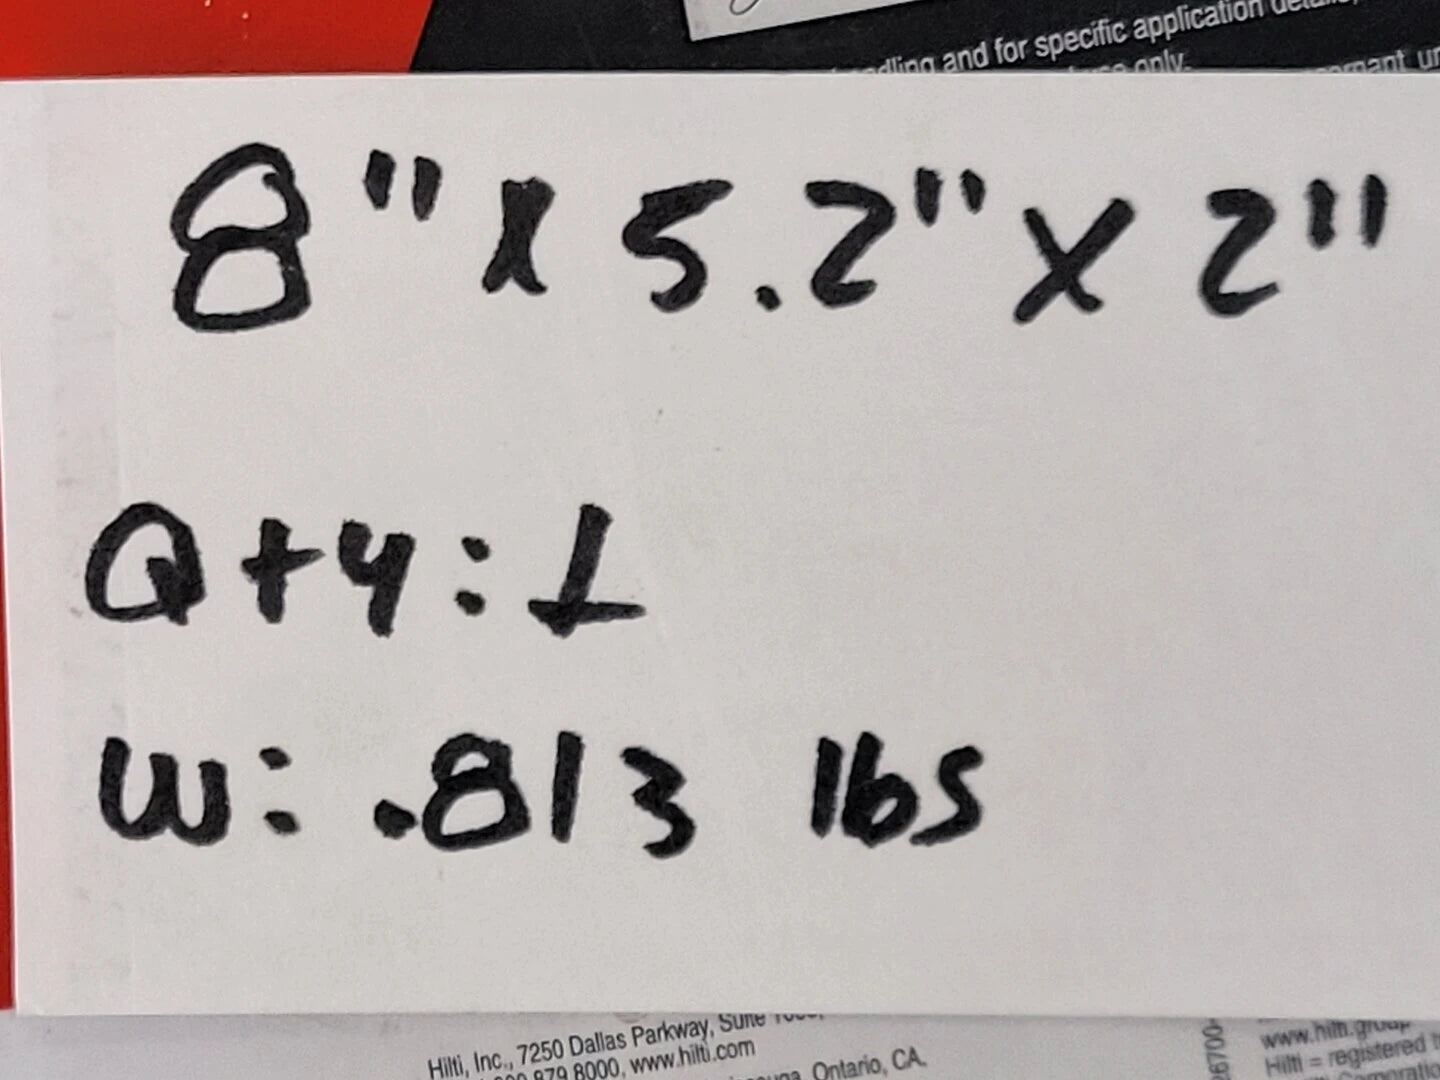 and for specific application
only.
8" x 5.2" x 2"
Qty: 1
W: .813 lbs
Hilti, Inc., 7250 Dallas Parkway, Suite
8000, www.hilti.com
Ontario, CA.
26700-
www.hilti.group
Hilti = registered